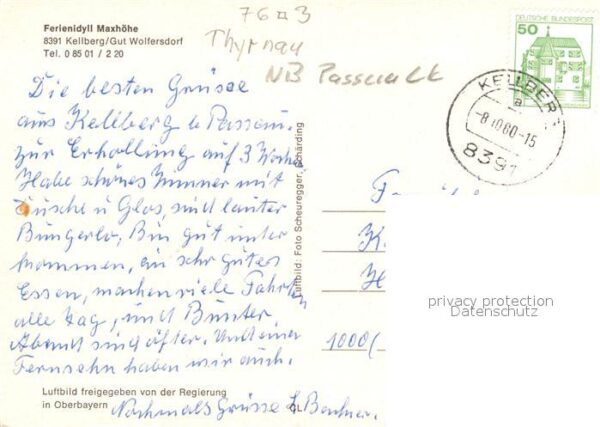 Ferienidyll Maxhöhe
8391 Kellberg/Gut Wolfersdorf
Tel. 0 85 01 / 2 20
76 3
Thyrnau
NB Passau Lk
50
DEUTSCHE BUNDESPOST
KELLBERG
a
-8.10.80-15
8391
Die besten Grüsse
aus Kellberg b Passau.
zur Erhollung auf 3 Woche
Habe schönes Zimmer mit
Dusche u Glos, sind lauter
Bungerlo, Bin gut unter
kommen, ein sehr gutes
Essen, machen viele Fahrten
alle Tag, und Bunter
Abend sind öfter. Und eine
Fernsehn haben wir auch.
Nochmals Grüsse
Luftbild: Foto Scheuregger, Schärding
F
K
H
1000/
privacy protection
Datenschutz
Luftbild freigegeben von der Regierung
in Oberbayern